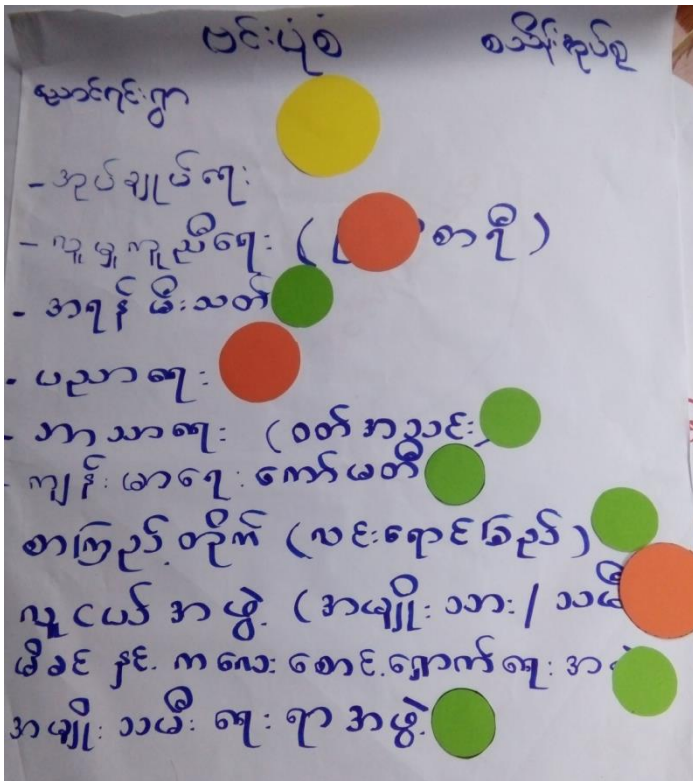 ဗင်းပုံစံ စသိမ်းအုပ်စု
ညောင်ရင်းရွာ
- အုပ်ချုပ်ရေး
- လူမှုကူညီရေး ( စာရီ )
- အရန် မီးသတ်
- ပညာရေး
- ဘာသာရေး (ဝတ်အသင်း)
- ကျန်းမာရေး ကော်မတီ
စာကြည့်တိုက် (လင်းရောင်ခြည်)
လူငယ်အဖွဲ့ (အမျိုးသား/သမီး
မိခင် နှင့် ကလေး စောင့်ရှောက်ရေး
အမျိုးသမီးရေးရာအဖွဲ့